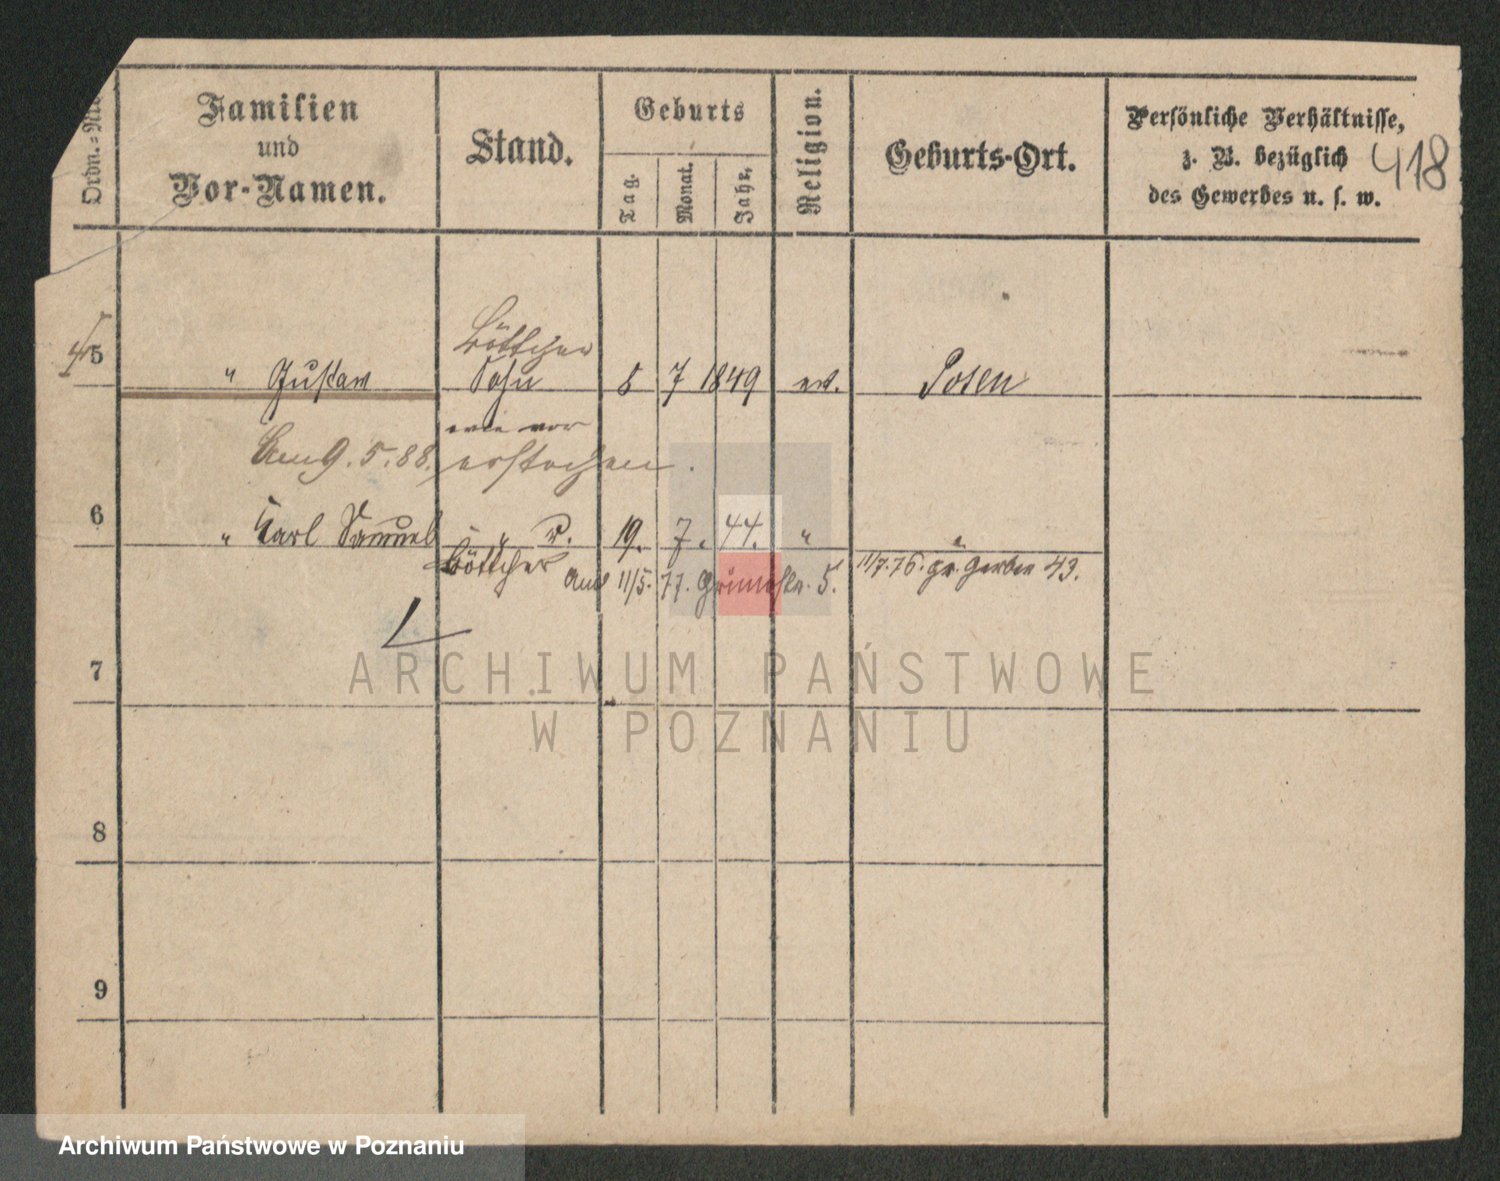 Ordn.=Nr.
Familien
und
Vor-Namen.
Stand.
Geburts
Tag.
Monat.
Jahr.
Religion.
Geburts-Ort.
Persönliche Verhältnisse,
z. B. bezüglich
des Gewerbes u. s. w.
418
Böttcher
5 " Gustav Sohn 8 7 1849 ev. Posen
wie vor
Am 9.5.88. erstochen.
6 " Karl Samuel " 19. 7. 44. " "
Böttcher 11/5. 77. 5. 11/7.76. gr. Gerber 43.
7
8
9
ARCHIWUM PAŃSTWOWE
W POZNANIU
Archiwum Państwowe w Poznaniu